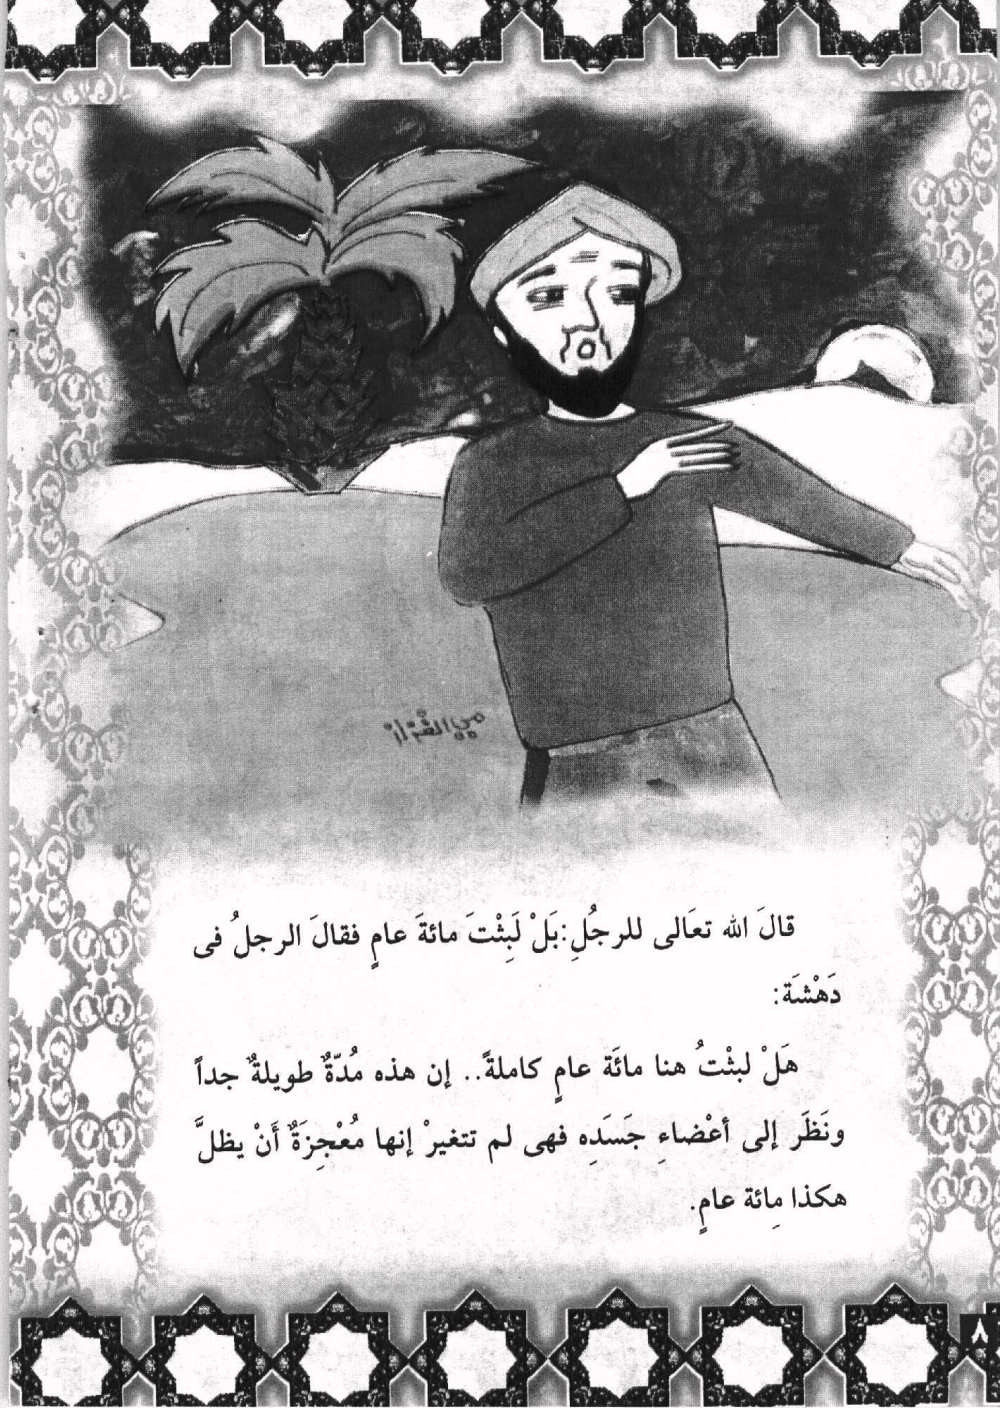 مي القزاز
قالَ الله تعَالى للرجُلِ:بَلْ لَبِثْتَ مائةَ عامٍ فقالَ الرجلُ فى
دَهْشَة:
هَلْ لبثْتُ هنا مائَة عامٍ كاملةً.. إن هذه مُدّةٌ طويلةٌ جداً
ونَظَر إلى أعْضاءِ جَسَدِه فهى لم تتغيرْ إنها مُعْجِزَةٌ أَنْ يظلَّ
هكذا مِائة عامٍ.
٨